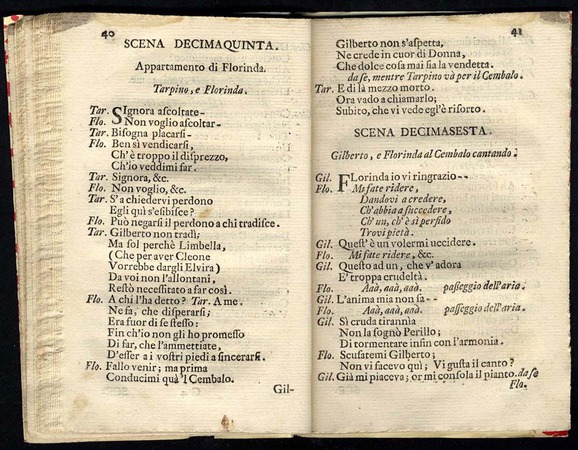 40
SCENA DECIMAQUINTA.
Appartamento di Florinda.
Tarpino, e Florinda.
Tar. SIgnora ascoltate-
Flo. Non voglio ascoltar-
Tar. Bisogna placarsi-
Flo. Ben sì vendicarsi,
Ch'è troppo il disprezzo,
Ch'io veddimi far.
Tar. Signora, &c.
Flo. Non voglio, &c.
Tar. S'a chiedervi perdono
Egli quì s'esibisce?
Flo. Può negarsi il perdono a chi tradisce.
Tar. Gilberto non tradì;
Ma sol perchè Limbella,
(Che per aver Cleone
Vorrebbe dargli Elvira)
Da voi non l'allontani,
Restò necessitato a far così.
Flo. A chi l'ha detto? Tar. A me.
Ne sà, che disperarsi;
Era fuor di se stesso:
Fin ch'io non gli hò promesso
Di far, che l'ammettiate,
D'esser a i vostri piedi a sincerarsi.
Flo. Fallo venir; ma prima
Conducimi quà 'l Cembalo.
Gil-
41
Gilberto non s'aspetta,
Ne crede in cuor di Donna,
Che dolce cosa mai sia la vendetta.
da se, mentre Tarpino và per il Cembalo.
Tar. E di là mezzo morto.
Ora vado a chiamarlo;
Subito, che vi vede egl'è risorto.
SCENA DECIMASESTA.
Gilberto, e Florinda al Cembalo cantando.
Gil. FLorinda io vi ringrazio--
Flo. Mi fate ridere,
Dandovi a credere,
Ch'abbia a succedere,
Ch'un, ch'è sì perfido
Trovi pietà.
Gil. Quest'è un volermi uccidere.
Flo. Mi fate ridere, &c.
Gil. Questo ad un, che v'adora
E' troppa crudeltà.
Flo. Aaà, aaà, aaà. passeggio dell'aria.
Gil. L'anima mia non sa--
Flo. Aaà, aaà, aaà. passeggio dell'aria.
Gil. Sì cruda tirannìa
Non la sognò Perillo;
Di tormentare insin con l'armonia.
Flo. Scusatemi Gilberto;
Non vi facevo quì; Vi gusta il canto?
Gil. Già mi piaceva; or mi consola il pianto. da se
Flo.